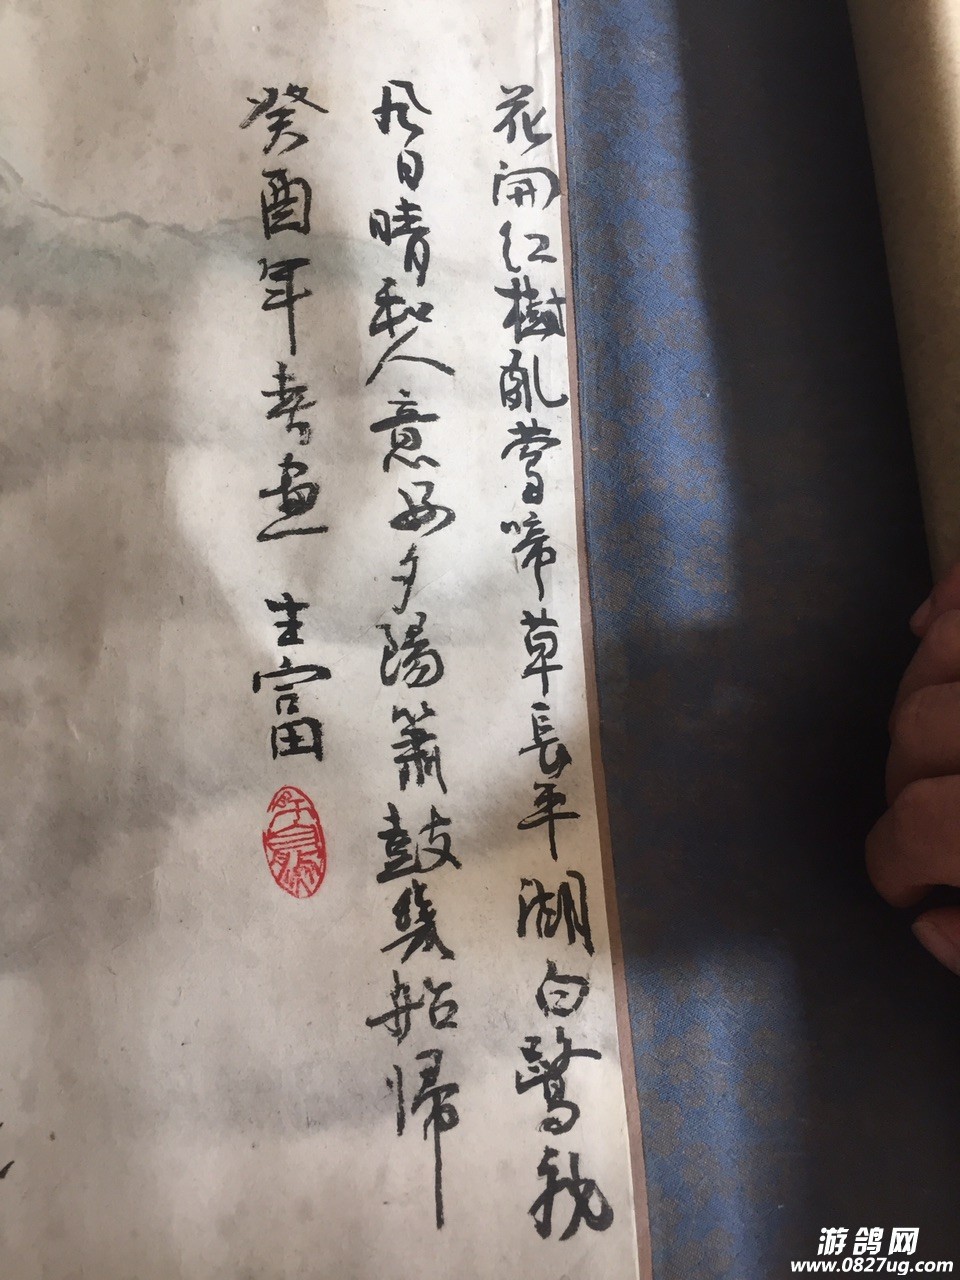 花開红樹亂莺啼草長平湖白鷺飛
风日晴和人意好夕陽簫鼓幾船帰
癸酉年春画 生富
游鸽网
www.0827ug.com